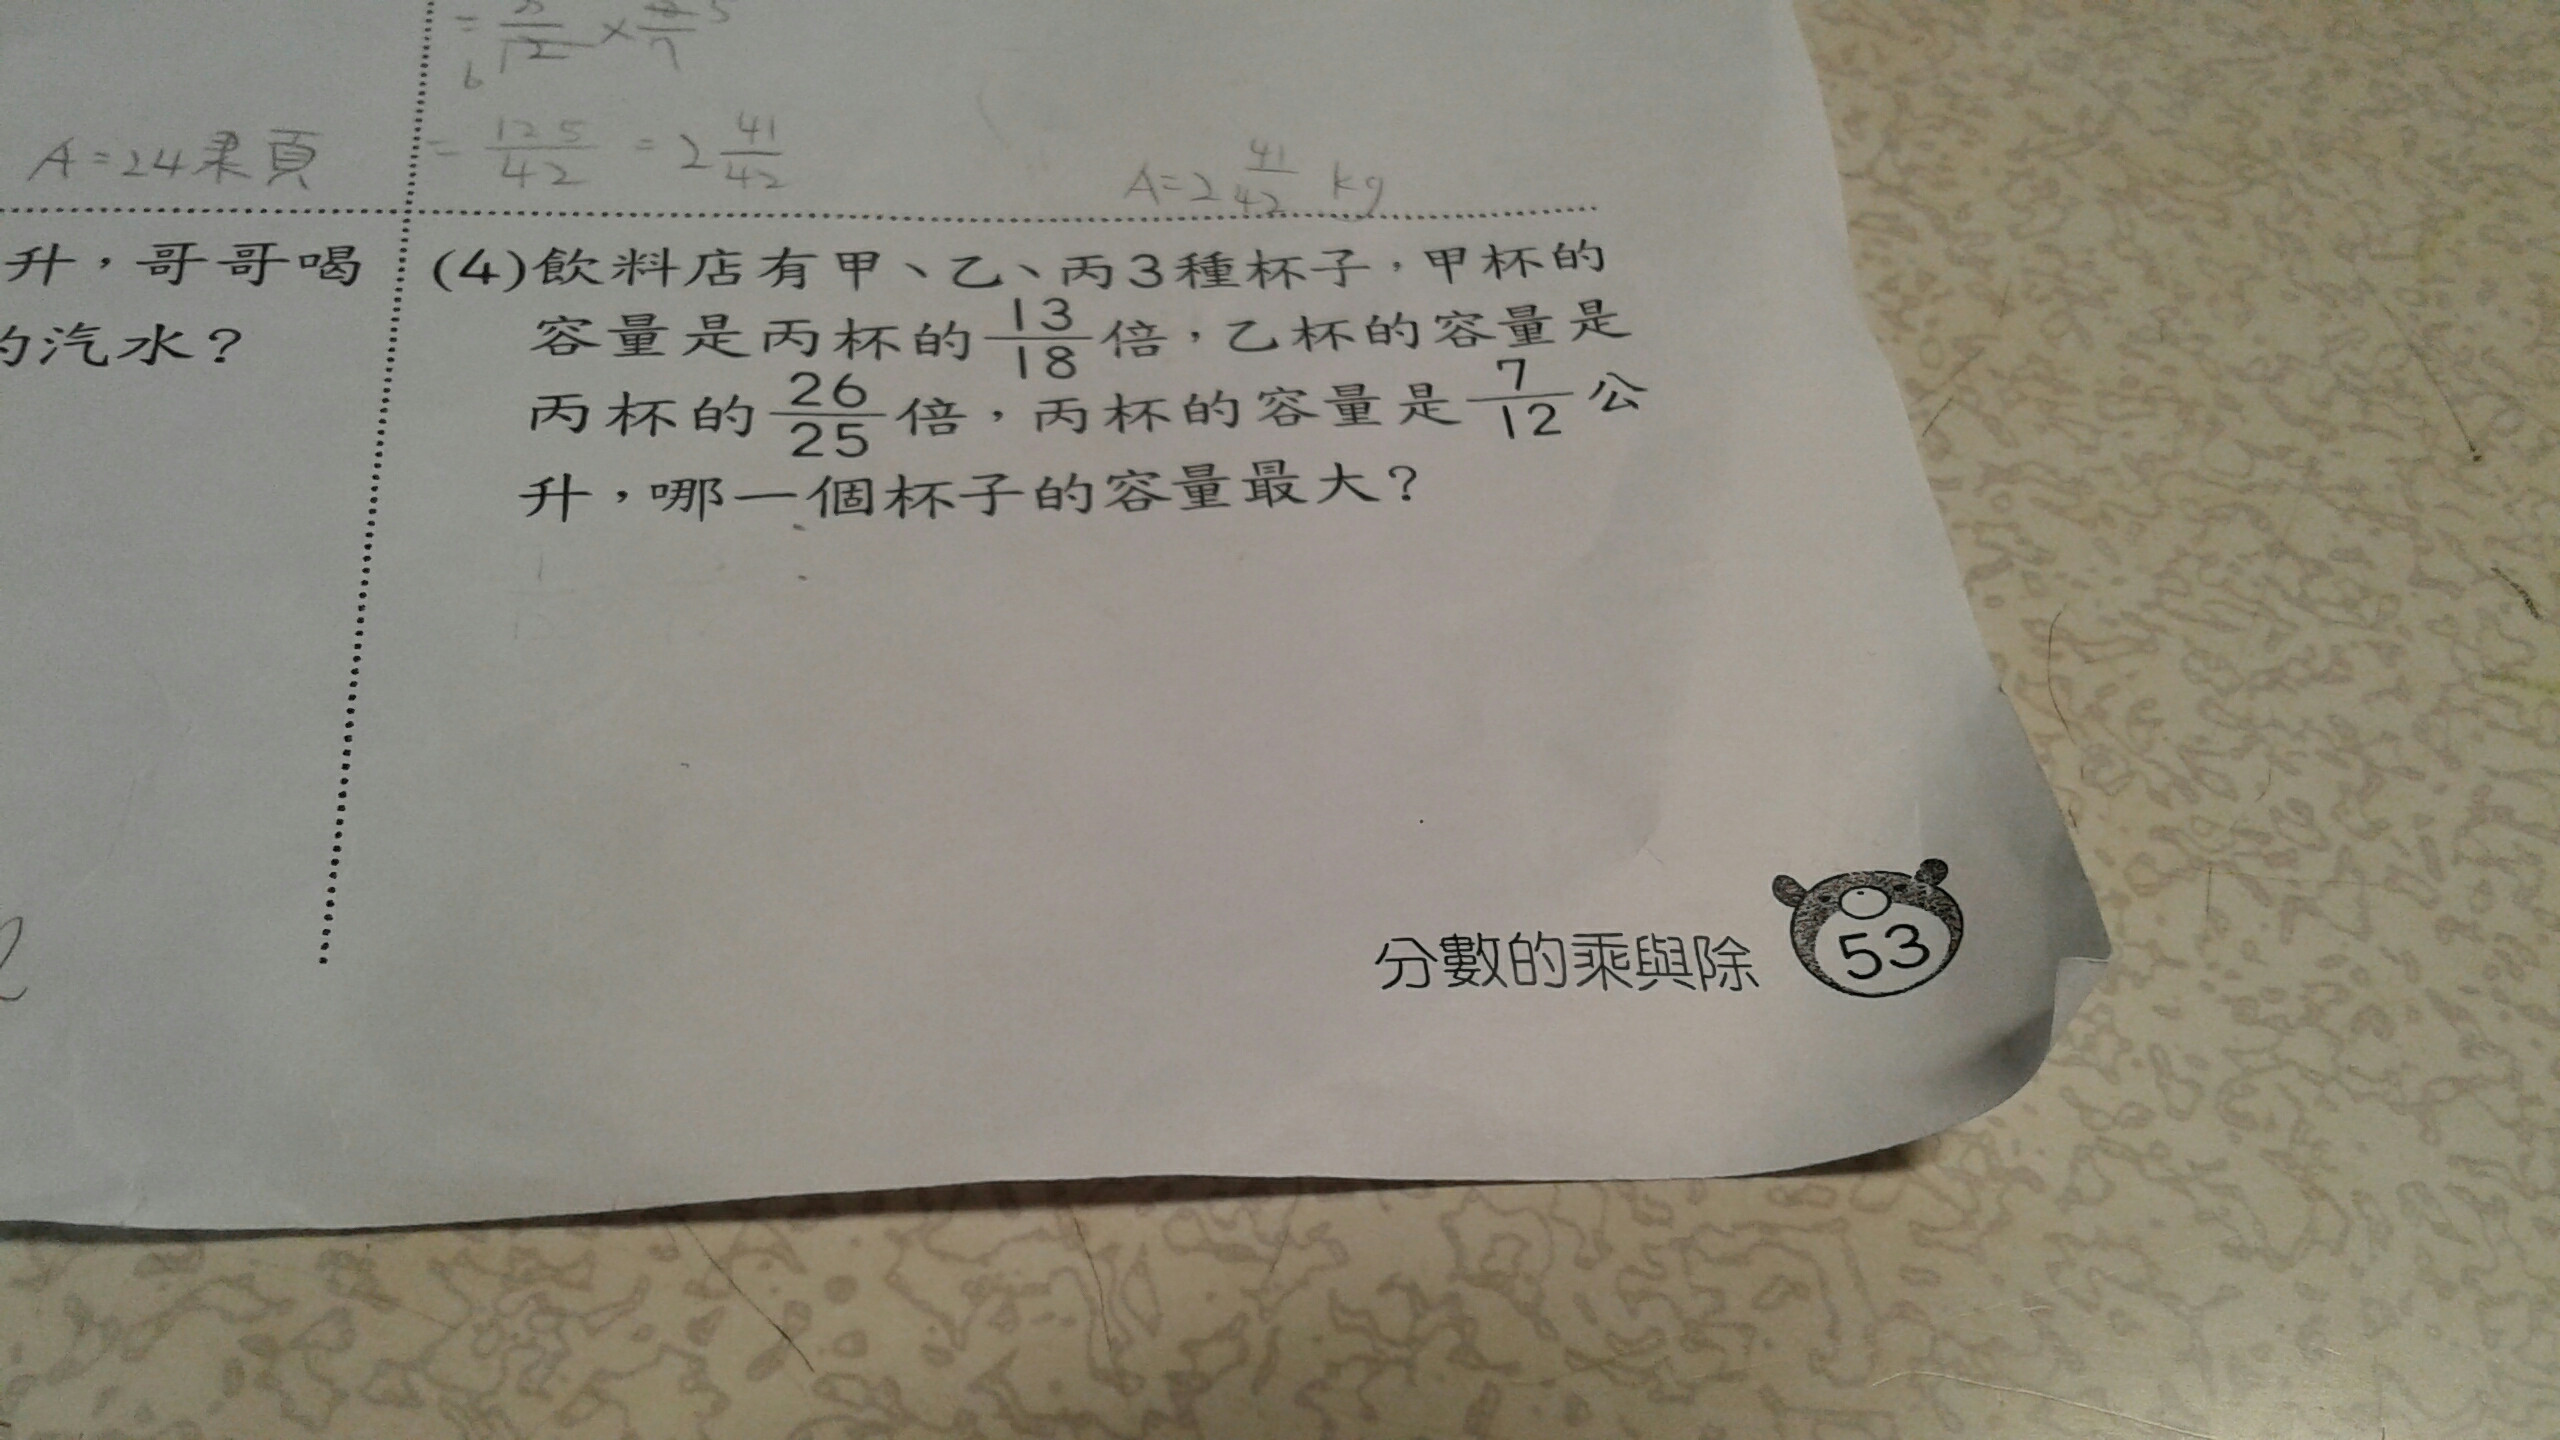 A=24 果頁
= 125/42 = 2 41/42
A=2 41/42 kg
升，哥哥喝
的汽水？
(4)飲料店有甲、乙、丙3種杯子，甲杯的
容量是丙杯的13/18倍，乙杯的容量是
丙杯的26/25倍，丙杯的容量是7/12公
升，哪一個杯子的容量最大？
分數的乘與除 53